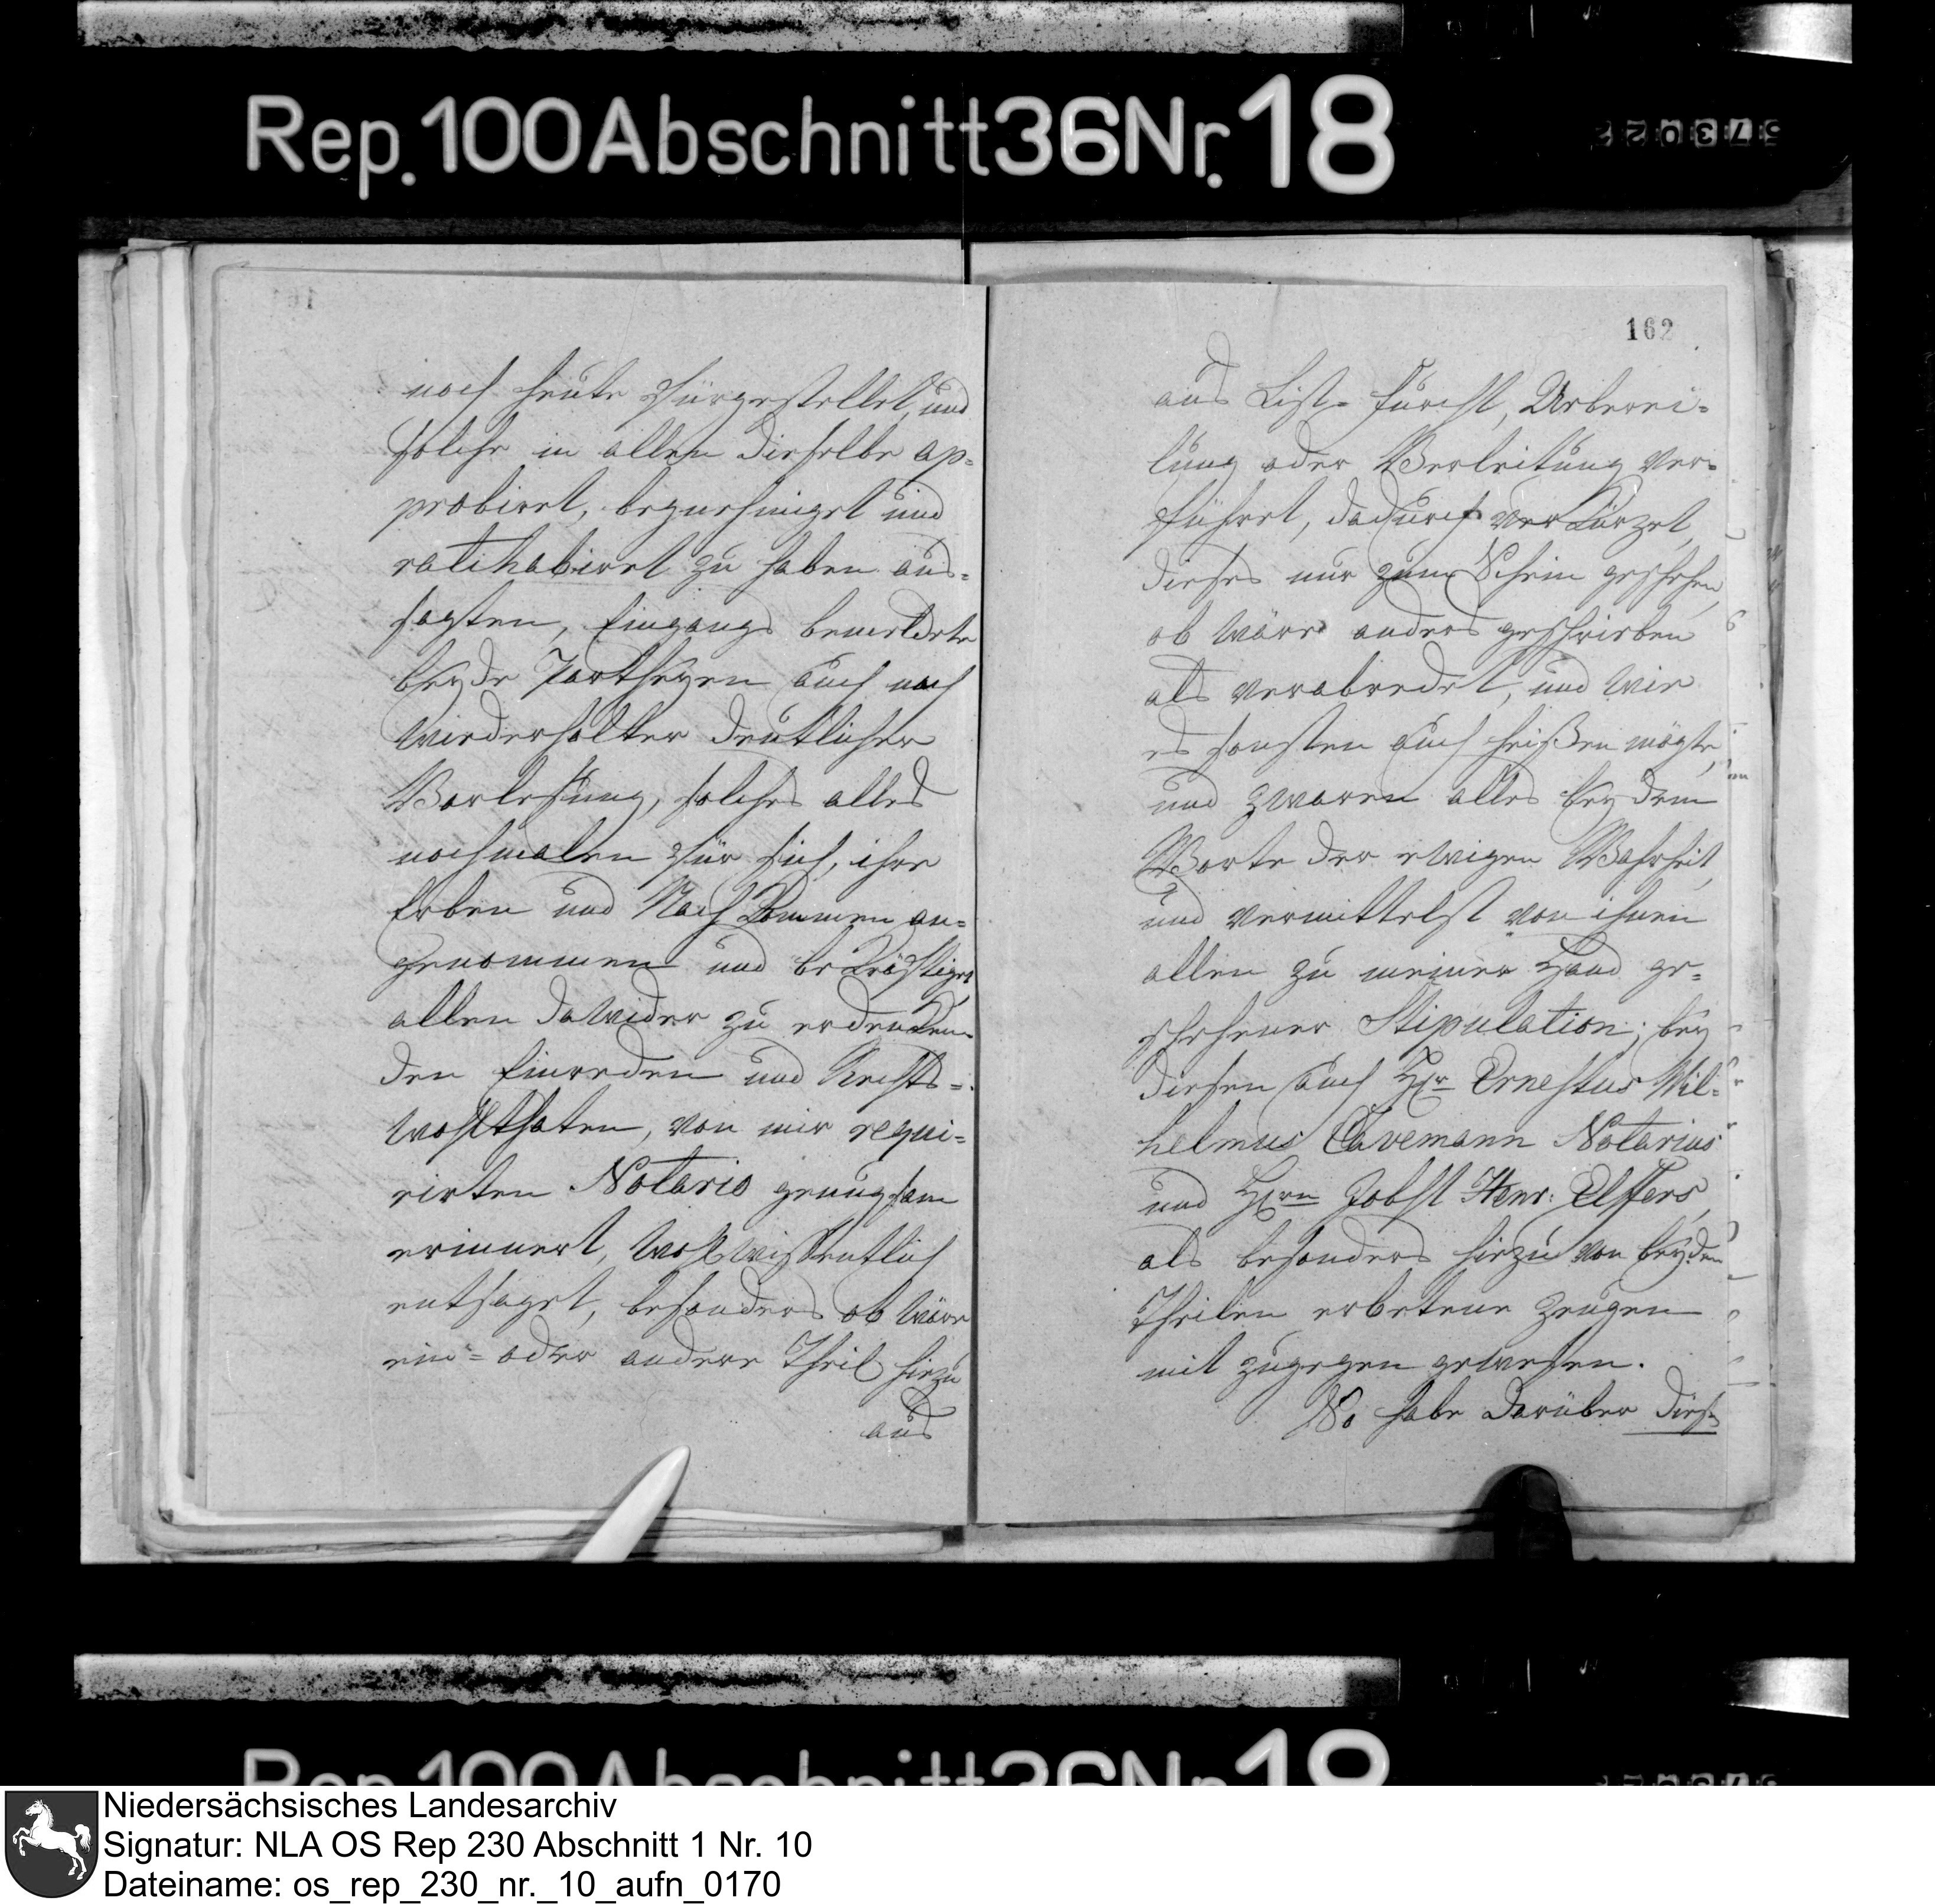 Rep. 100 Abschnitt 36 Nr. 18
noch heute fürgestellet, und
solche in allen dieselbe ap-
probiret, begnehmiget und
ratihabiret zu haben aus-
sagten, Eingangs bemeldete
beyde Partheyen auch nach
wiederholter deutlicher
Vorlesung, solches alles
nochmalen für sich, ihre
Erben und Nachkommen an-
genommen und bekräftiget,
allen dawider zu erdenken-
den Einreden und Rechts-
wohlthaten, von mir requi-
rirten Notario genugsam
erinnert, wohlwissentlich
entsaget, besonders ob wäre
ein- oder andere Theil hiezu
aus
162
aus List- Furcht, Ueberei-
lung oder Verleitung ver-
führet, dadurch verkürzet,
dieses nur zum Schein geschehen,
ob wäre anders geschrieben
als verabredet, und wie
es sonsten auch heißen mögte,
und zwaren alles bey dem
Worte der ewigen Wahrheit,
und vermittelst von ihnen
allen zu meiner Hand ge-
schehener Stipulation; bey
diesen auch Hr Ernestus Wil-
helmus Cavemann Notarius
und Hrn Jobst Henr: Elffers,
als besonders hiezu von beyden
Theilen erbetene Zeugen
mit zugegen gewesen.
So habe darüber dieses
Niedersächsisches Landesarchiv
Signatur: NLA OS Rep 230 Abschnitt 1 Nr. 10
Dateiname: os_rep_230_nr._10_aufn_0170